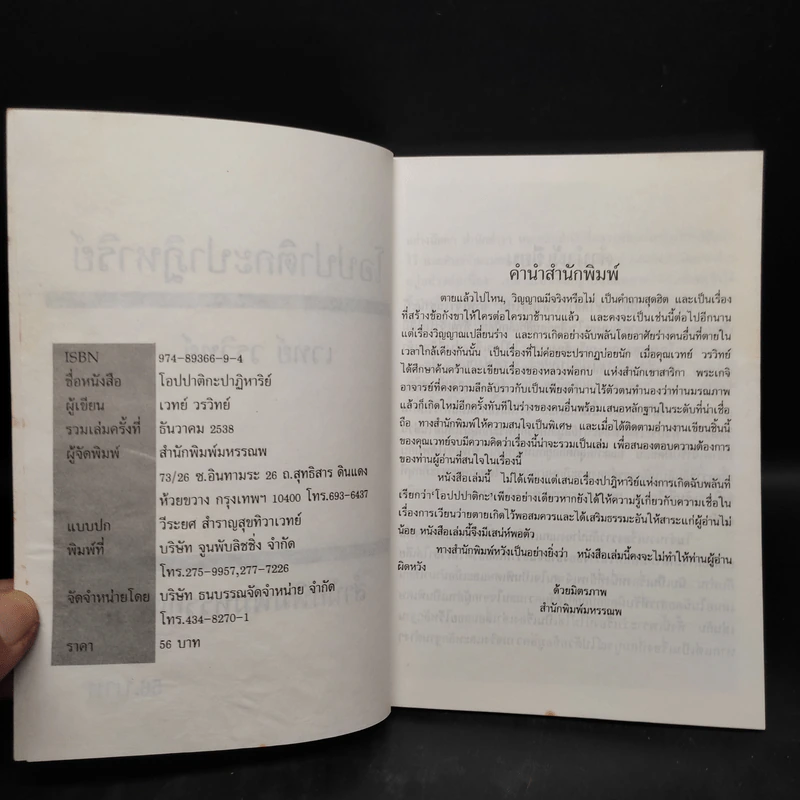 ISBN 974-89366-9-4
ชื่อหนังสือ โอปปาติกะปาฏิหาริย์
ผู้เขียน เวทย์ วรวิทย์
รวมเล่มครั้งที่ ธันวาคม 2538
ผู้จัดพิมพ์ สำนักพิมพ์มหรรณพ
73/26 ซ.อินทามระ 26 ถ.สุทธิสาร ดินแดง
ห้วยขวาง กรุงเทพฯ 10400 โทร.693-6437
แบบปก วีระยศ สำราญสุขทิวาเวทย์
พิมพ์ที่ บริษัท จูนพับลิชชิ่ง จำกัด
โทร.275-9957,277-7226
จัดจำหน่ายโดย บริษัท ธนบรรณจัดจำหน่าย จำกัด
โทร.434-8270-1
ราคา 56 บาท
คำนำสำนักพิมพ์
ตายแล้วไปไหน, วิญญาณมีจริงหรือไม่ เป็นคำถามสุดฮิต และเป็นเรื่อง
ที่สร้างข้อกังขาให้ใครต่อใครมาช้านานแล้ว และคงจะเป็นเช่นนี้ต่อไปอีกนาน
แต่เรื่องวิญญาณเปลี่ยนร่าง และการเกิดอย่างฉับพลันโดยอาศัยร่างคนอื่นที่ตายใน
เวลาใกล้เคียงกันนั้น เป็นเรื่องที่ไม่ค่อยจะปรากฏบ่อยนัก เมื่อคุณเวทย์ วรวิทย์
ได้ศึกษาค้นคว้าและเขียนเรื่องของหลวงพ่อกบ แห่งสำนักเขาสาริกา พระเกจิ
อาจารย์ที่คงความลึกลับราวกับเป็นเพียงตำนานไร้ตัวตนทำนองว่าท่านมรณภาพ
แล้วก็เกิดใหม่อีกครั้งทันทีในร่างของคนอื่นพร้อมเสนอหลักฐานในระดับที่น่าเชื่อ
ถือ ทางสำนักพิมพ์ให้ความสนใจเป็นพิเศษ และเมื่อได้ติดตามอ่านงานเขียนชิ้นนี้
ของคุณเวทย์จบมีความคิดว่าเรื่องนี้น่าจะรวมเป็นเล่ม เพื่อสนองตอบความต้องการ
ของท่านผู้อ่านที่สนใจในเรื่องนี้
หนังสือเล่มนี้ ไม่ได้เพียงแต่เสนอเรื่องปาฏิหาริย์แห่งการเกิดฉับพลันที่
เรียกว่า'โอปปาติกะ'เพียงอย่างเดียวหากยังได้ให้ความรู้เกี่ยวกับความเชื่อใน
เรื่องการเวียนว่ายตายเกิดไว้พอสมควรและได้เสริมธรรมะอันให้สาระแก่ผู้อ่านไม่
น้อย หนังสือเล่มนี้จึงมีเสน่ห์พอตัว
ทางสำนักพิมพ์หวังเป็นอย่างยิ่งว่า หนังสือเล่มนี้คงจะไม่ทำให้ท่านผู้อ่าน
ผิดหวัง
ด้วยมิตรภาพ
สำนักพิมพ์มหรรณพ